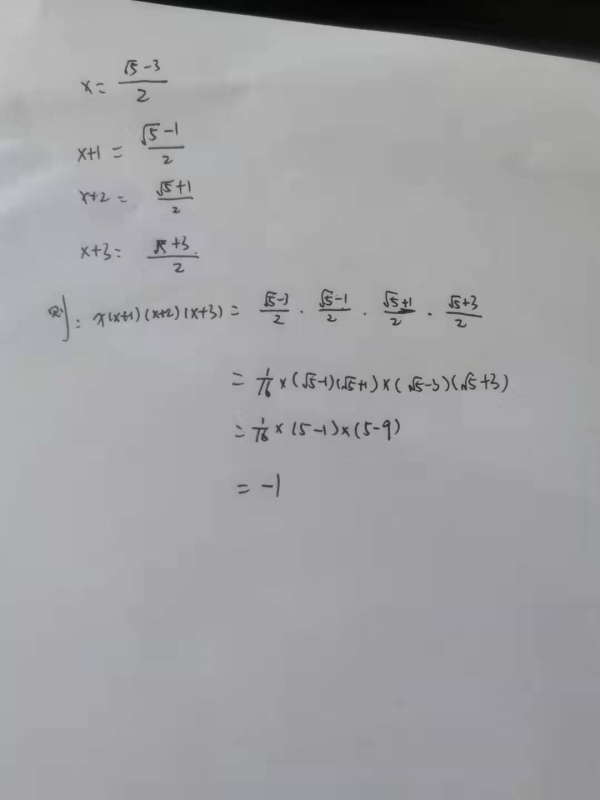 x = (√5-3)/2
x+1 = (√5-1)/2
x+2 = (√5+1)/2
x+3 = (√5+3)/2
则: x(x+1)(x+2)(x+3) = (√5-3)/2 · (√5-1)/2 · (√5+1)/2 · (√5+3)/2
= 1/16 × (√5-1)(√5+1) × (√5-3)(√5+3)
= 1/16 × (5-1) × (5-9)
= -1